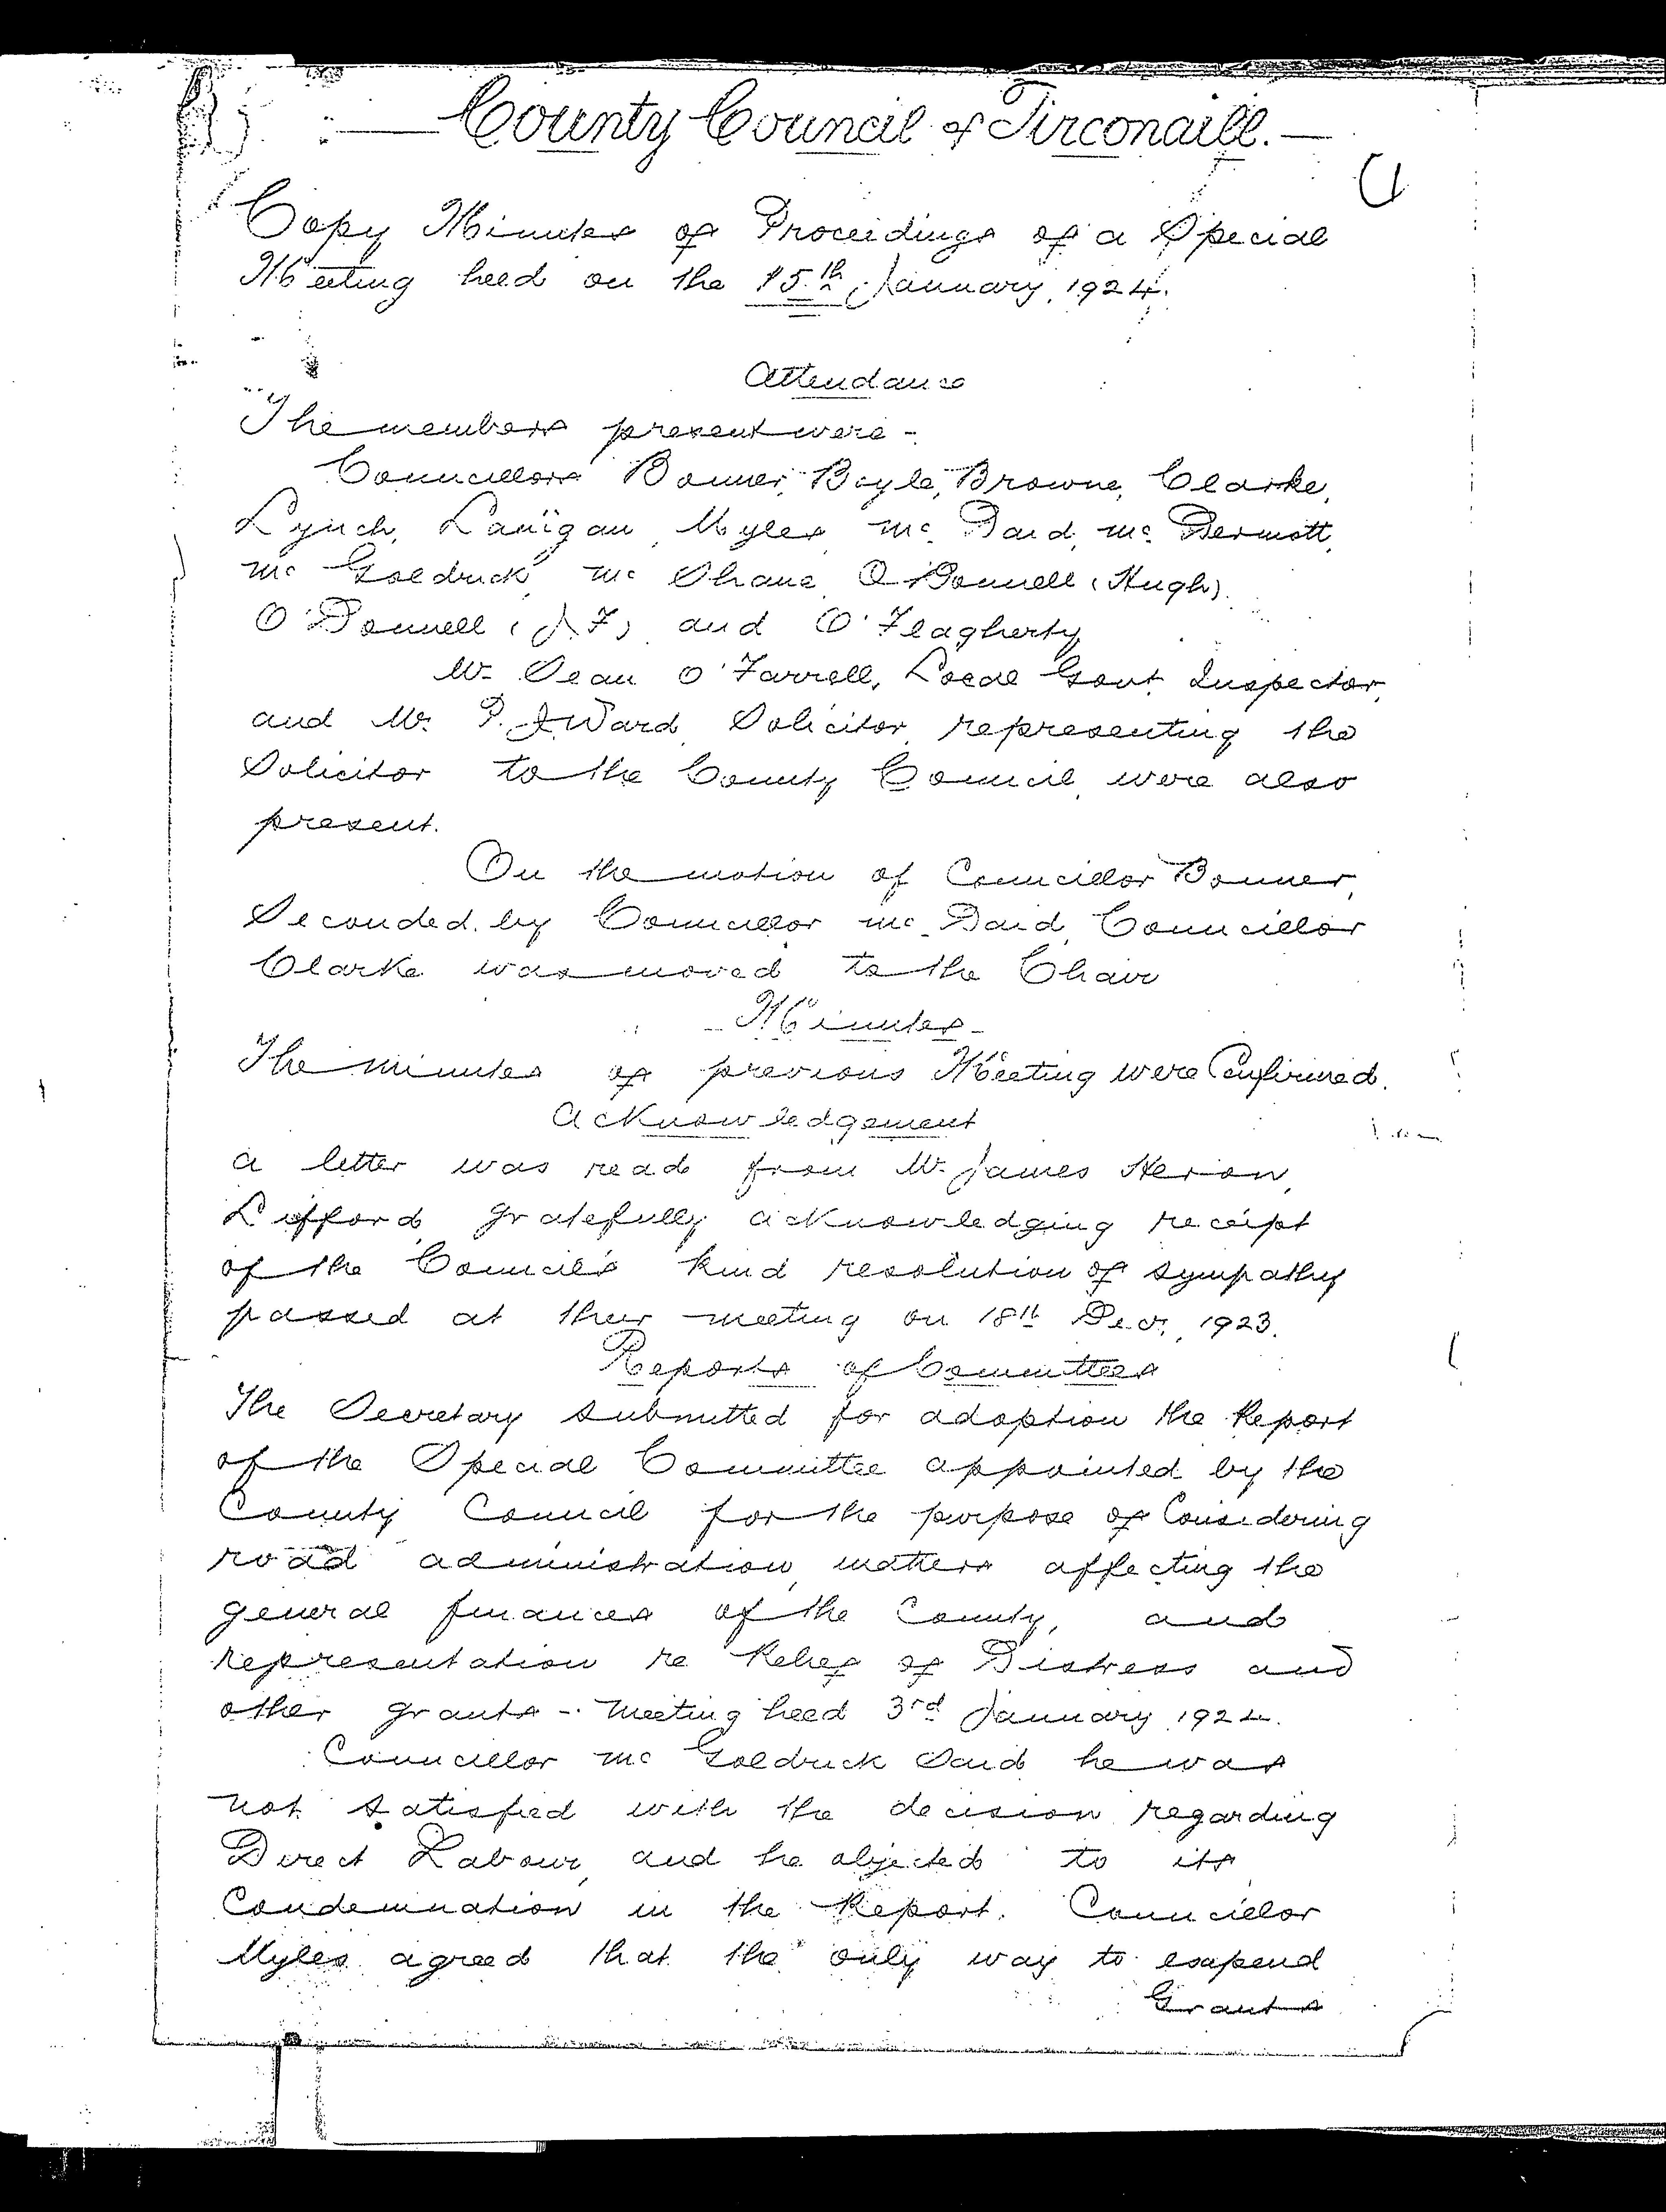 County Council of Tirconaill.
Copy Minutes of Proceedings of a Special
Meeting held on the 15th January, 1924.
Attendance
The members present were -
Councillors Bonner, Boyle, Browne, Clarke,
Lynch, Lanigan, Myles, Mc. Daid, Mc. Dermott,
Mc Goldrick, Mc Shane, O'Donnell (Hugh)
O'Donnell (J F) and O'Flagherty
Mr. Sean O'Farrell, Local Govt. Inspector,
and Mr. P. J. Ward, Solicitor, representing the
Solicitor to the County Council, were also
present.
On the motion of Councillor Bonner,
Seconded by Councillor Mc. Daid, Councillor
Clarke was moved to the Chair
- Minutes -
The minutes of previous Meeting were Confirmed.
Acknowledgement
A letter was read from Mr. James Heron,
Lifford, gratefully acknowledging receipt
of the Council's kind resolution of sympathy
passed at their meeting on 18th Decr., 1923.
Reports of Committees
The Secretary submitted for adoption the Report
of the Special Committee appointed by the
County Council for the purpose of Considering
road administration, matters affecting the
general finances of the County, and
representation re Relief of Distress and
other grants - Meeting held 3rd January, 1924.
Councillor Mc Goldrick said he was
not satisfied with the decision regarding
Direct Labour, and he objected to its
Condemnation in the Report. Councillor
Myles agreed that the only way to expend
Grants